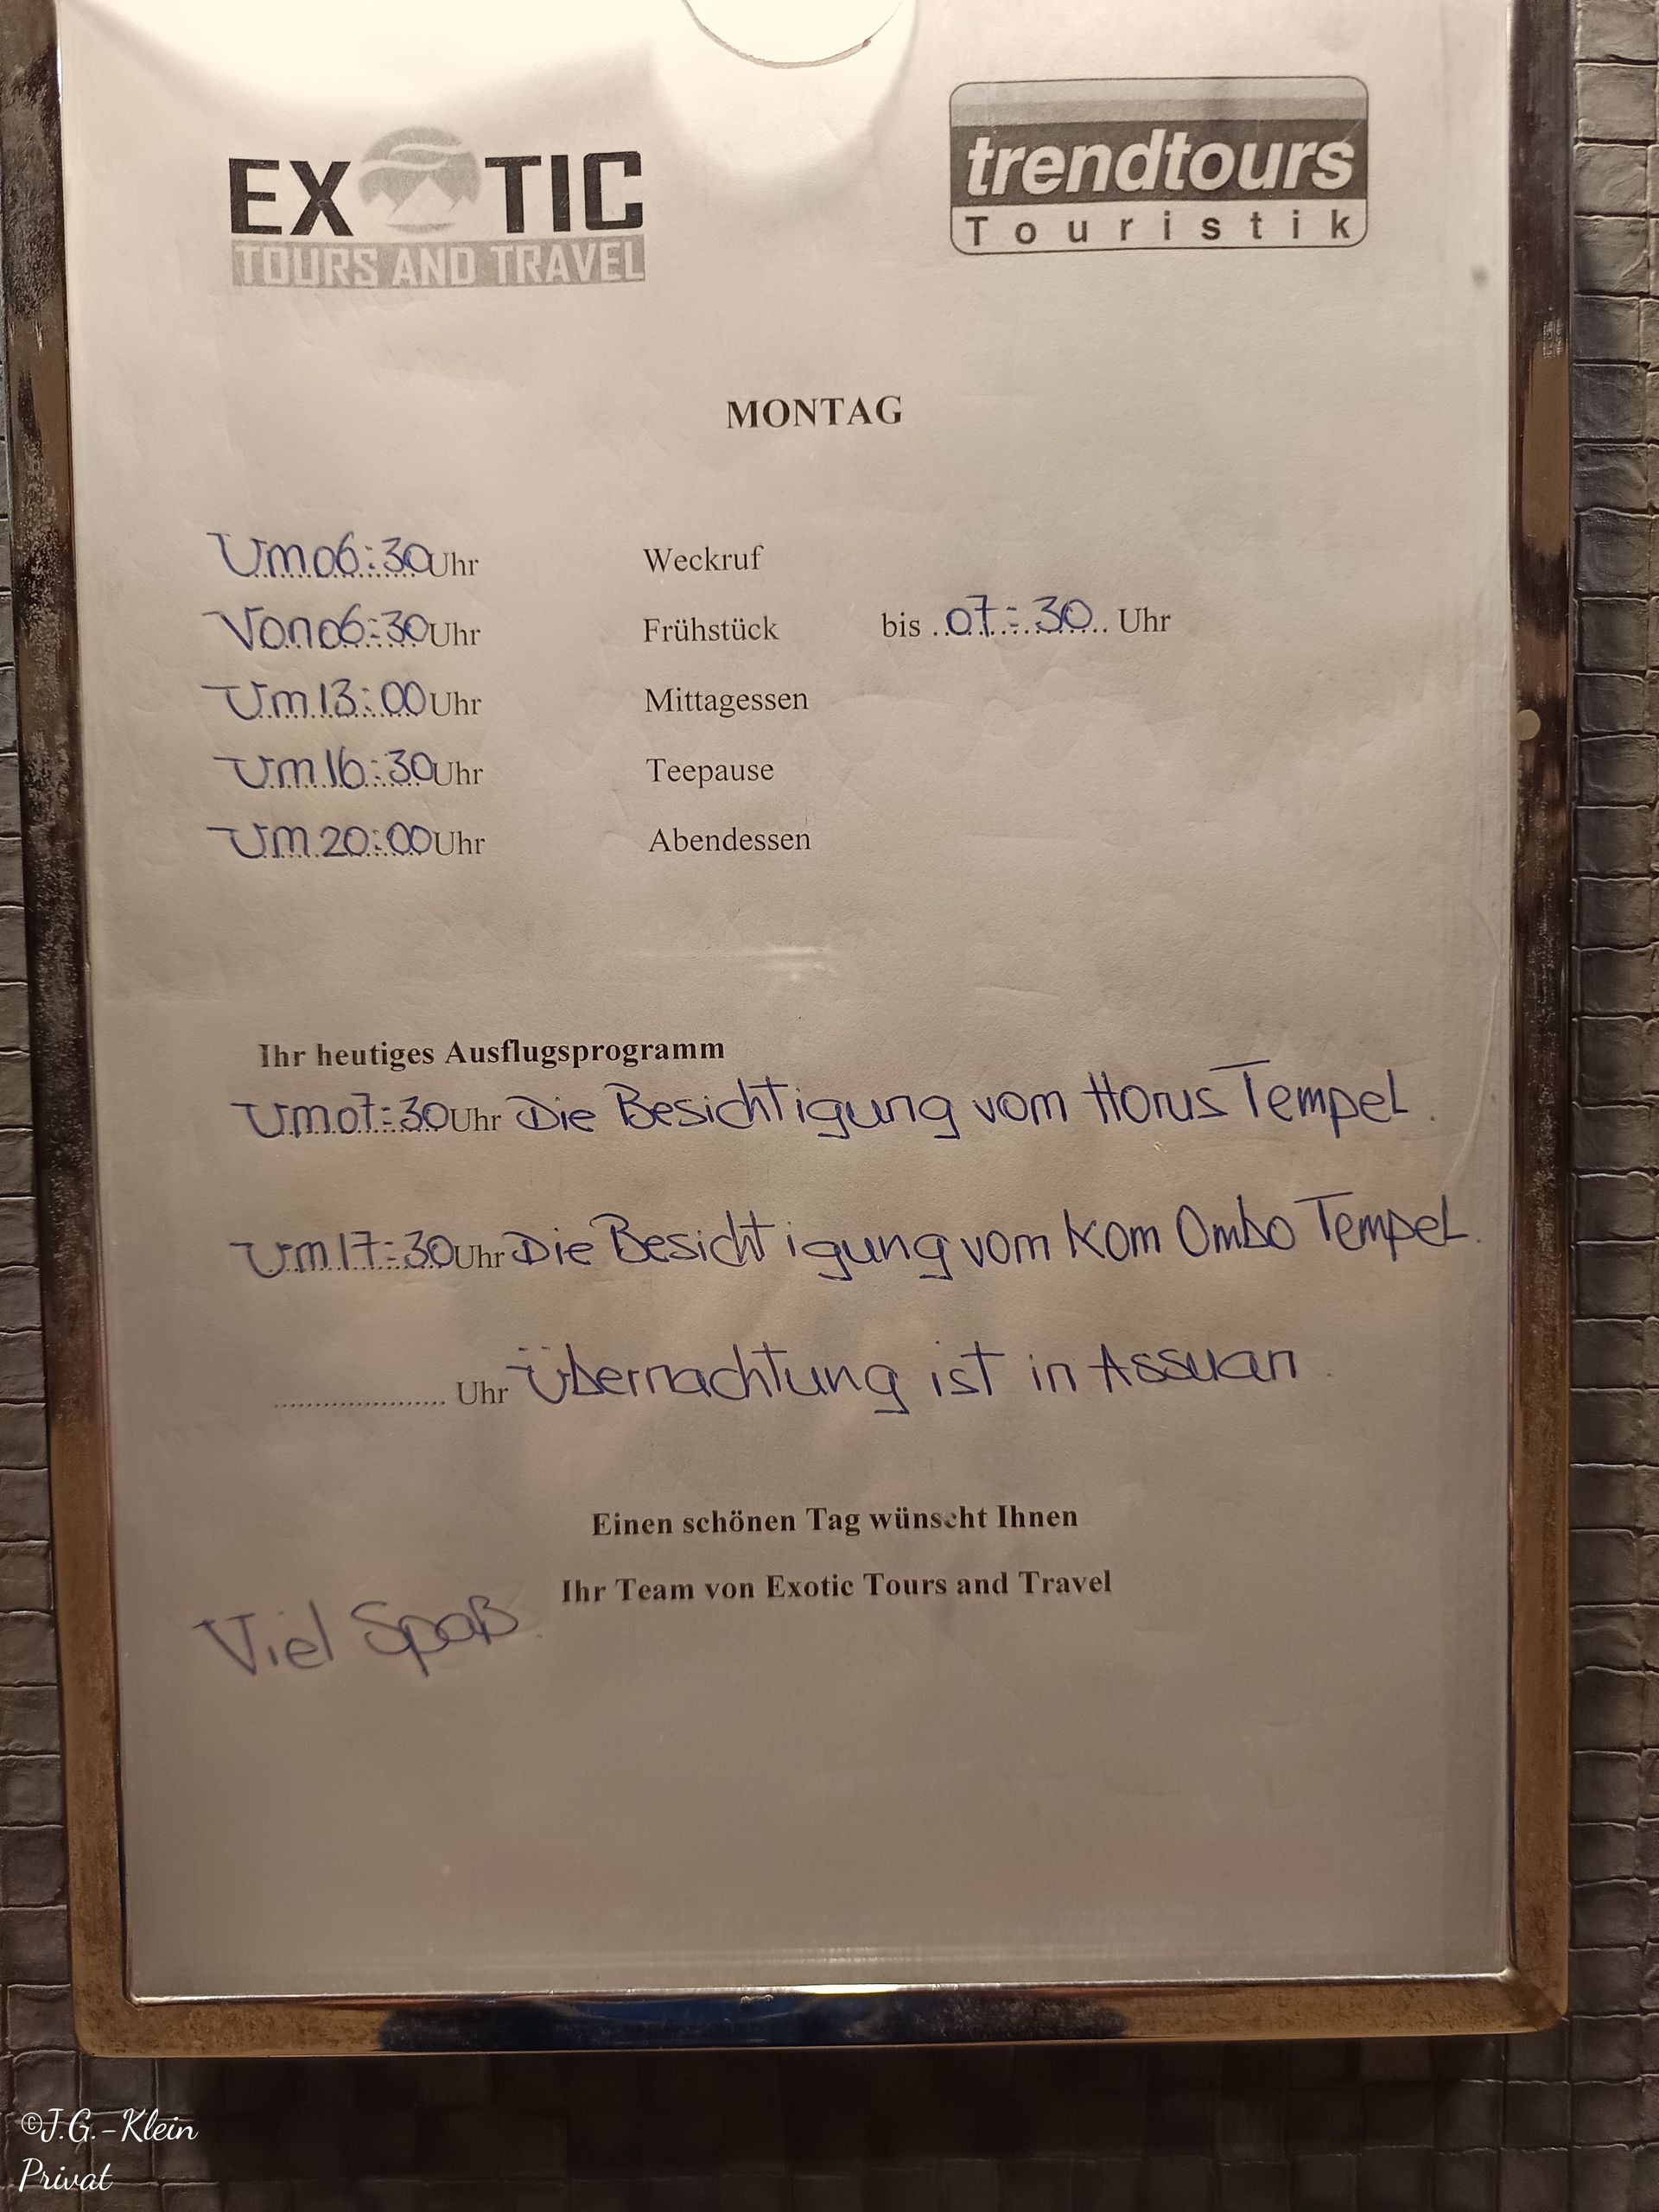 EXOTIC
TOURS AND TRAVEL
trendtours
Touristik
MONTAG
Um 06:30 Uhr Weckruf
Von 06:30 Uhr Frühstück bis 07:30 Uhr
Um 13:00 Uhr Mittagessen
Um 16:30 Uhr Teepause
Um 20:00 Uhr Abendessen
Ihr heutiges Ausflugsprogramm
Um 07:30 Uhr Die Besichtigung vom Horus Tempel.
Um 17:30 Uhr Die Besichtigung vom Kom Ombo Tempel.
.................... Uhr Übernachtung ist in Assuan.
Einen schönen Tag wünscht Ihnen
Ihr Team von Exotic Tours and Travel
Viel Spaß.
©J.G.-Klein
Privat